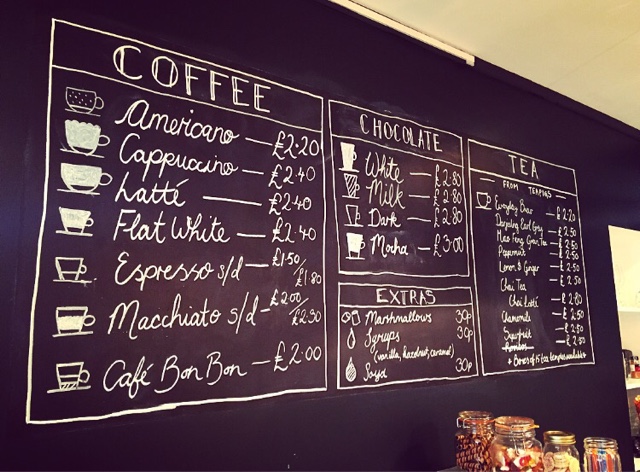 COFFEE
Americano — £2.20
Cappuccino — £2.40
Latté — £2.40
Flat White — £2.40
Espresso s/d — £1.50/£1.80
Macchiato s/d — £2.00/£2.50
Café Bon Bon — £2.00
CHOCOLATE
White — £2.80
Milk — £2.80
Dark — £2.80
Mocha — £3.00
EXTRAS
Marshmallows 30p
Syrups 30p
(vanilla, hazelnut, caramel)
Soya 30p
TEA
FROM TEAPIGS
Everyday Brew — £2.20
Darjeeling Earl Grey — £2.50
Mao Feng Green Tea — £2.50
Peppermint — £2.50
Lemon & Ginger — £2.50
Chai Tea — £2.50
Chai Latté — £2.80
Chamomile — £2.50
Superfruit — £2.50
+ Boxes of 15 tea temples available